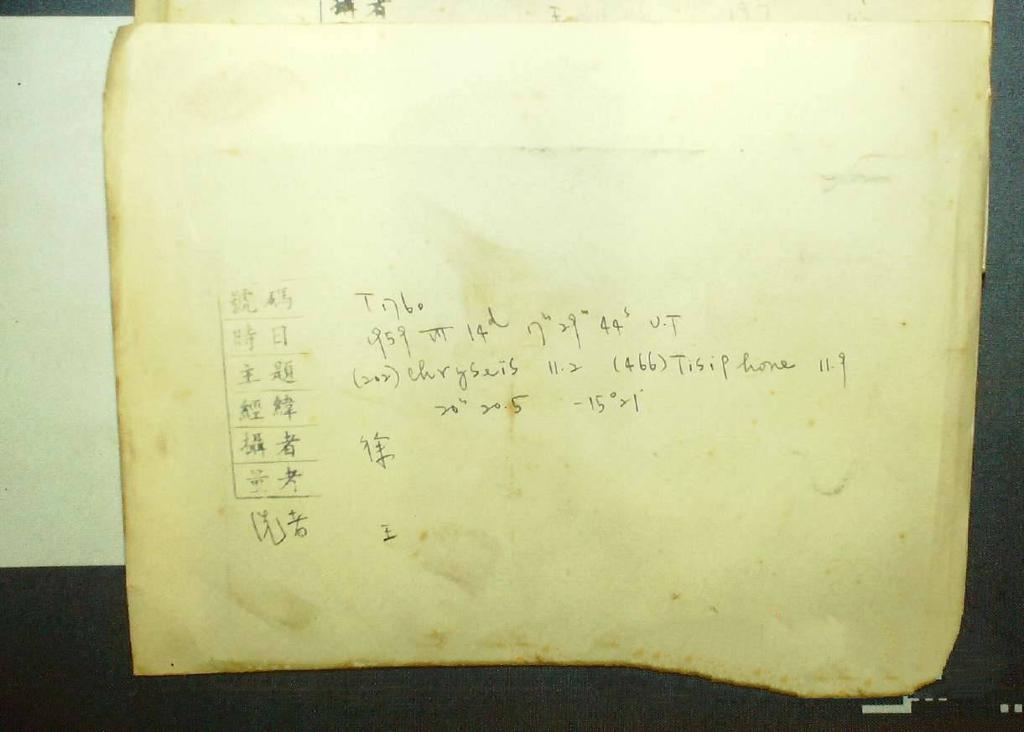 攝者 王
號碼 T 1760
時日 1959 VII 14ᵈ 17ʰ 29ᵐ 44ˢ U.T
主題 (202) Chryseis 11.2 (466) Tisiphone 11.9
經緯 20ʰ 20.5 -15°21'
攝者 徐
量者
洗者 王